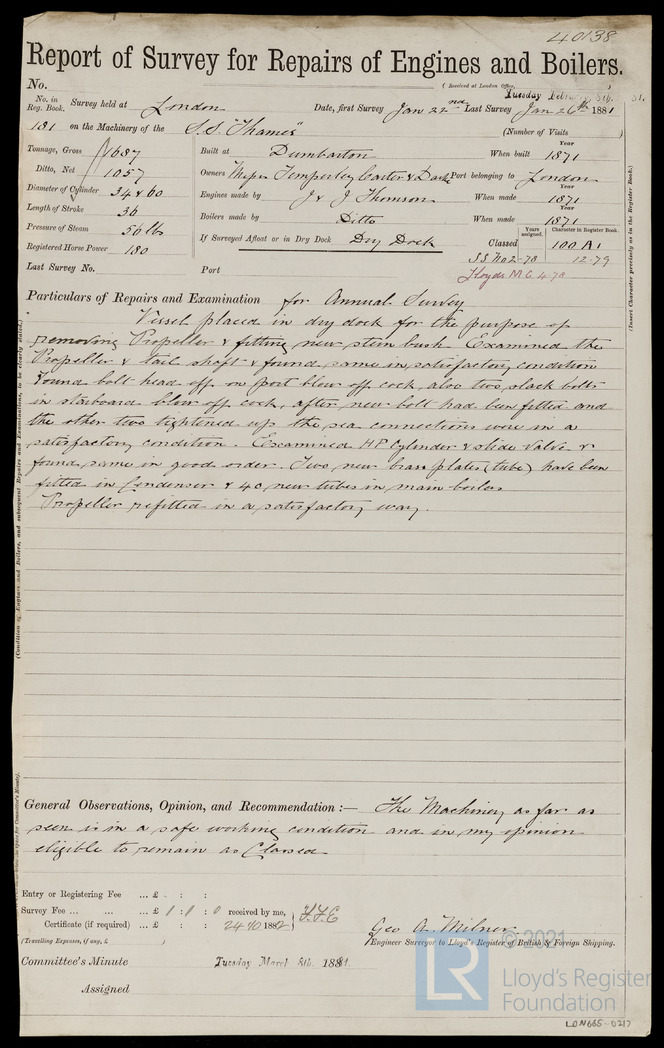 40138
Report of Survey for Repairs of Engines and Boilers.
No. (Received at London Office, Tuesday
No. in Reg. Book. Survey held at London Date, first Survey Jan 22nd Last Survey Jan 26th 1881
181 on the Machinery of the S.S. "Thames" (Number of Visits )
Tonnage, Gross 1687 Built at Dumbarton When built Year 1871
Ditto, Net 1057 Owners Temperley Carter & Port belonging to London
Diameter of Cylinder 34 & 60 Engines made by J & J Thomson When made Year 1871
Length of Stroke 36 Boilers made by Ditto When made Year 1871
Pressure of Steam lbs If Surveyed Afloat or in Dry Dock Dry Dock Classed Years assigned. Character in Register Book. 100 A1
Registered Horse Power 180 SS No 2-78 12-79
Last Survey No. Port Lloyds M.C. 4-78
Particulars of Repairs and Examination for Annual Survey
Vessel placed in dry dock for the purpose of
removing Propeller & fitting new stern bush Examined the
Propeller & tail shaft & found same in satisfactory condition
Found bolt head off on port blow off cock, also two slack bolts
in starboard blow off cock, after new bolt had been fitted and
the other two tightened up the sea connections were in a
satisfactory condition. Examined HP Cylinder & slide valve &
found same in good order. Two new brass plates (tube) have been
fitted in Condenser & 40 new tubes in main boilers
Propeller refitted in a satisfactory way.
General Observations, Opinion, and Recommendation :— The Machinery as far as
seen is in a safe working condition and in my opinion
eligible to remain as Classed
Entry or Registering Fee ... £ : :
Survey Fee ... ... ... £ 1 : 1 : 0 received by me,
Certificate (if required) ... £ : : 188
(Travelling Expenses, if any, £ )
Geo A. Milner
Engineer Surveyor to Lloyd's Register of British & Foreign Shipping.
Committee's Minute Tuesday March 188
Assigned
(Insert Character precisely as in the Register Book.)
© 2021
LR
Lloyd's Register
Foundation
LON665-0217